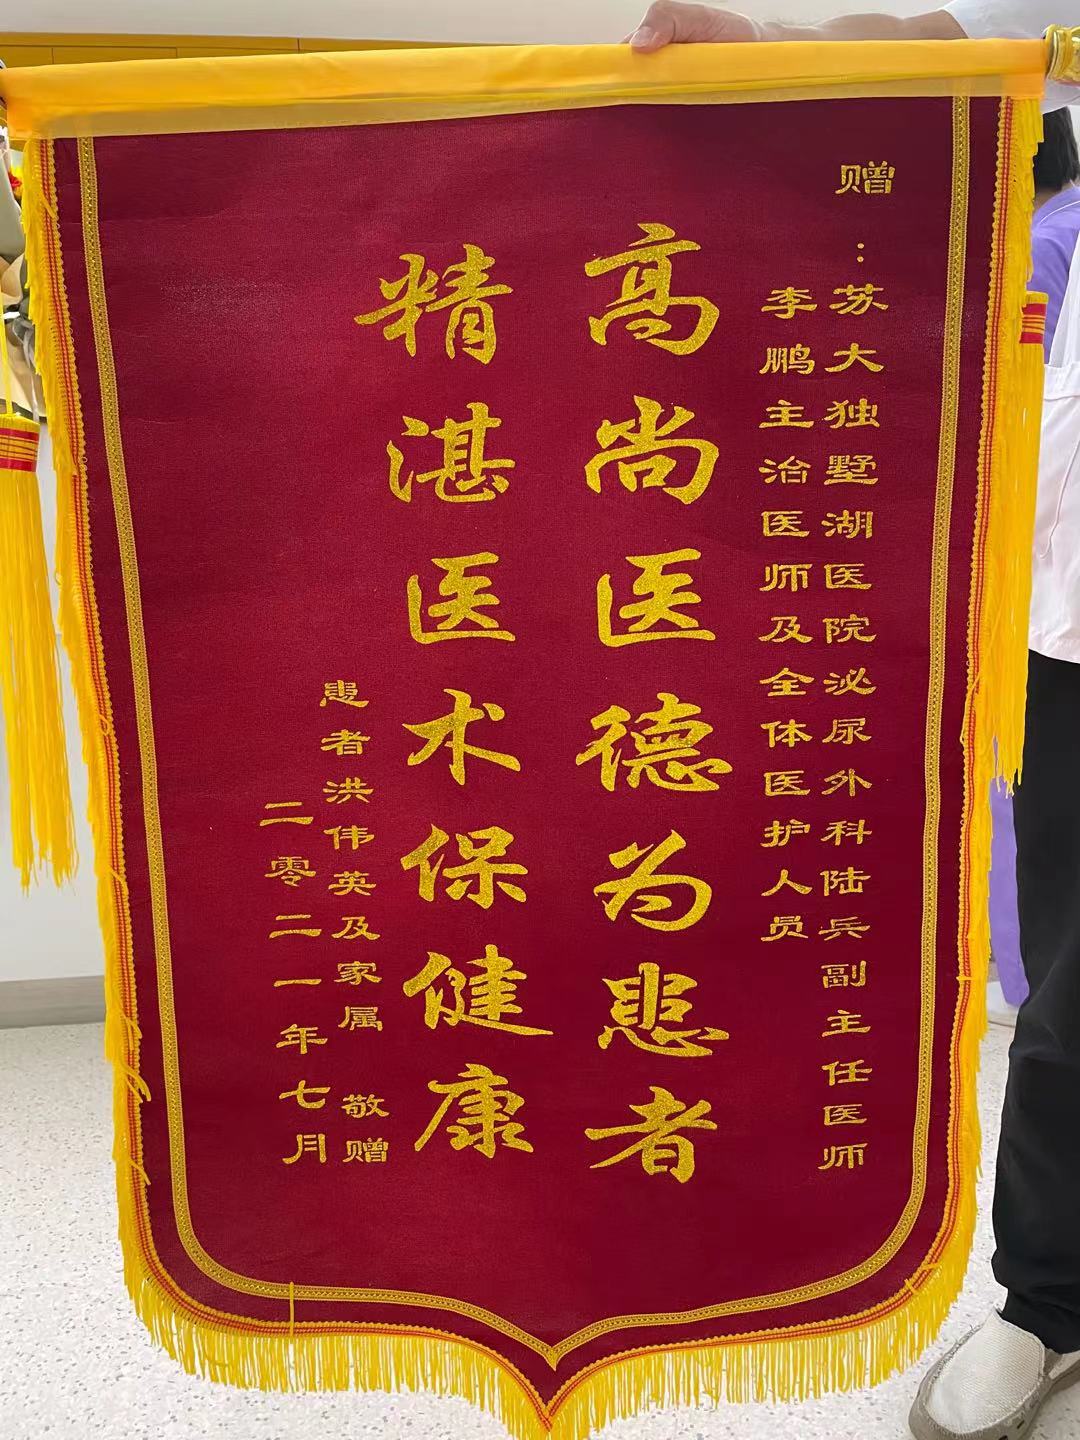 赠：苏大独墅湖医院泌尿外科陆兵副主任医师
李鹏主治医师及全体医护人员
高尚医德为患者
精湛医术保健康
患者洪伟英及家属 敬赠
二零二一年七月